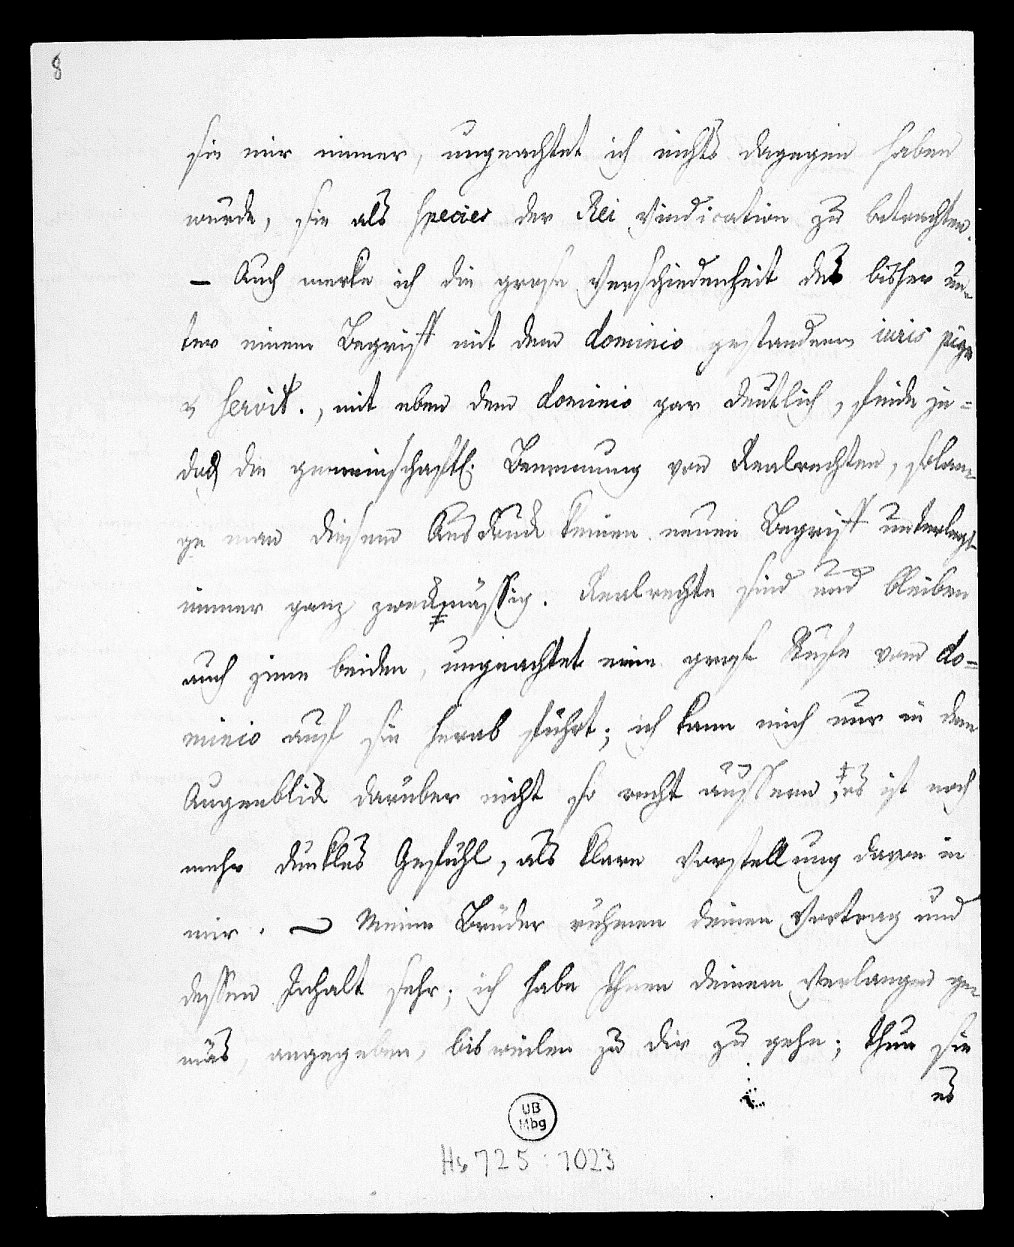 8
sie mir immer, ungeachtet ich nichts dagegen haben
würde, sie als species der Rei Vindication zu betrachten.
– Auch merke ich die grose Verschiedenheit des bisher un-
ter einem Begriff mit dem dominio gestandenen iuris pign
& servit., mit eben dem dominio gar deutlich, finde je=
doch die gemeinschaftl. Benennung von Realrechten, solan-
ge man diesem Ausdruck keinen neuen Begriff unterlegt
immer ganz zweckmässig. Realrechte sind und bleiben
auch jene beiden, ungeachtet eine grose Stufe vom do-
minio auf sie herab führt; ich kann mich nur in dem
Augenblick darüber nicht so recht äussern, es ist noch
mehr dunkles Gefühl, als klare Vorstellung davon in
mir. – Meine Brüder rühmen deinen Vortrag und
dessen Inhalt sehr; ich habe ihnen deinem Verlangen ge-
mäs, angegeben, bisweilen zu dir zu gehn; thun sie
es
UB
Mbg
Hs 725:1023